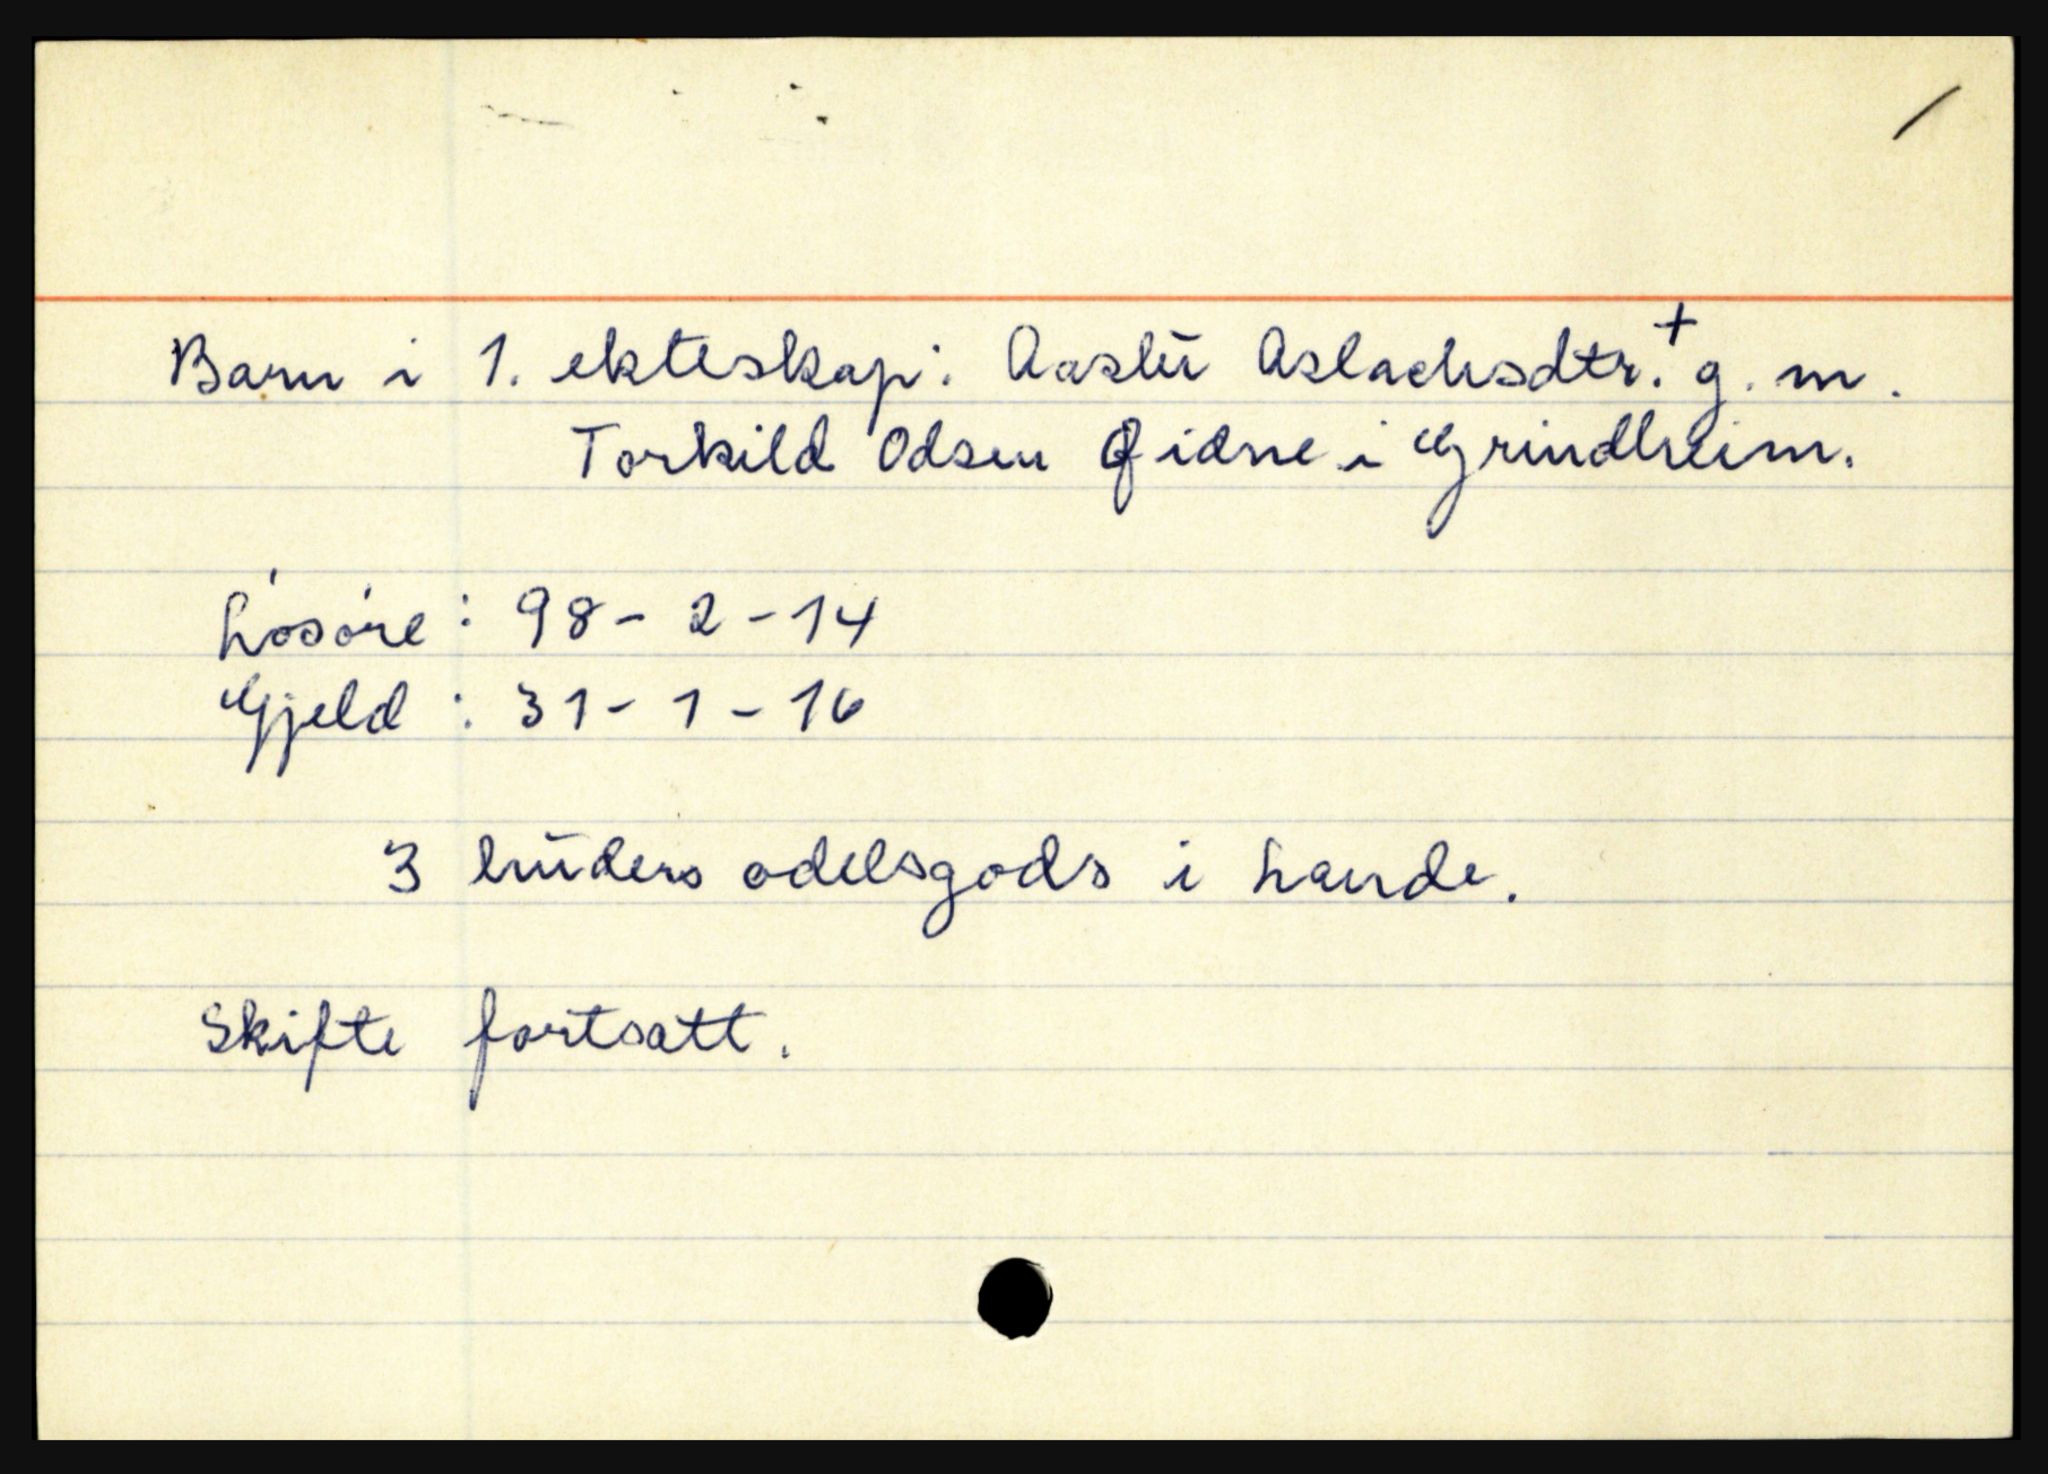 Barn i 1. ekteskap: Aaslu Aslachsdtr.+ g. m.
Torkild Odsen Qidne i Grindheim.
Løsøre : 98 - 2 - 14
Gjeld : 31 - 1 - 16
3 huders odelsgods i Lande.
Skifte fortsatt.